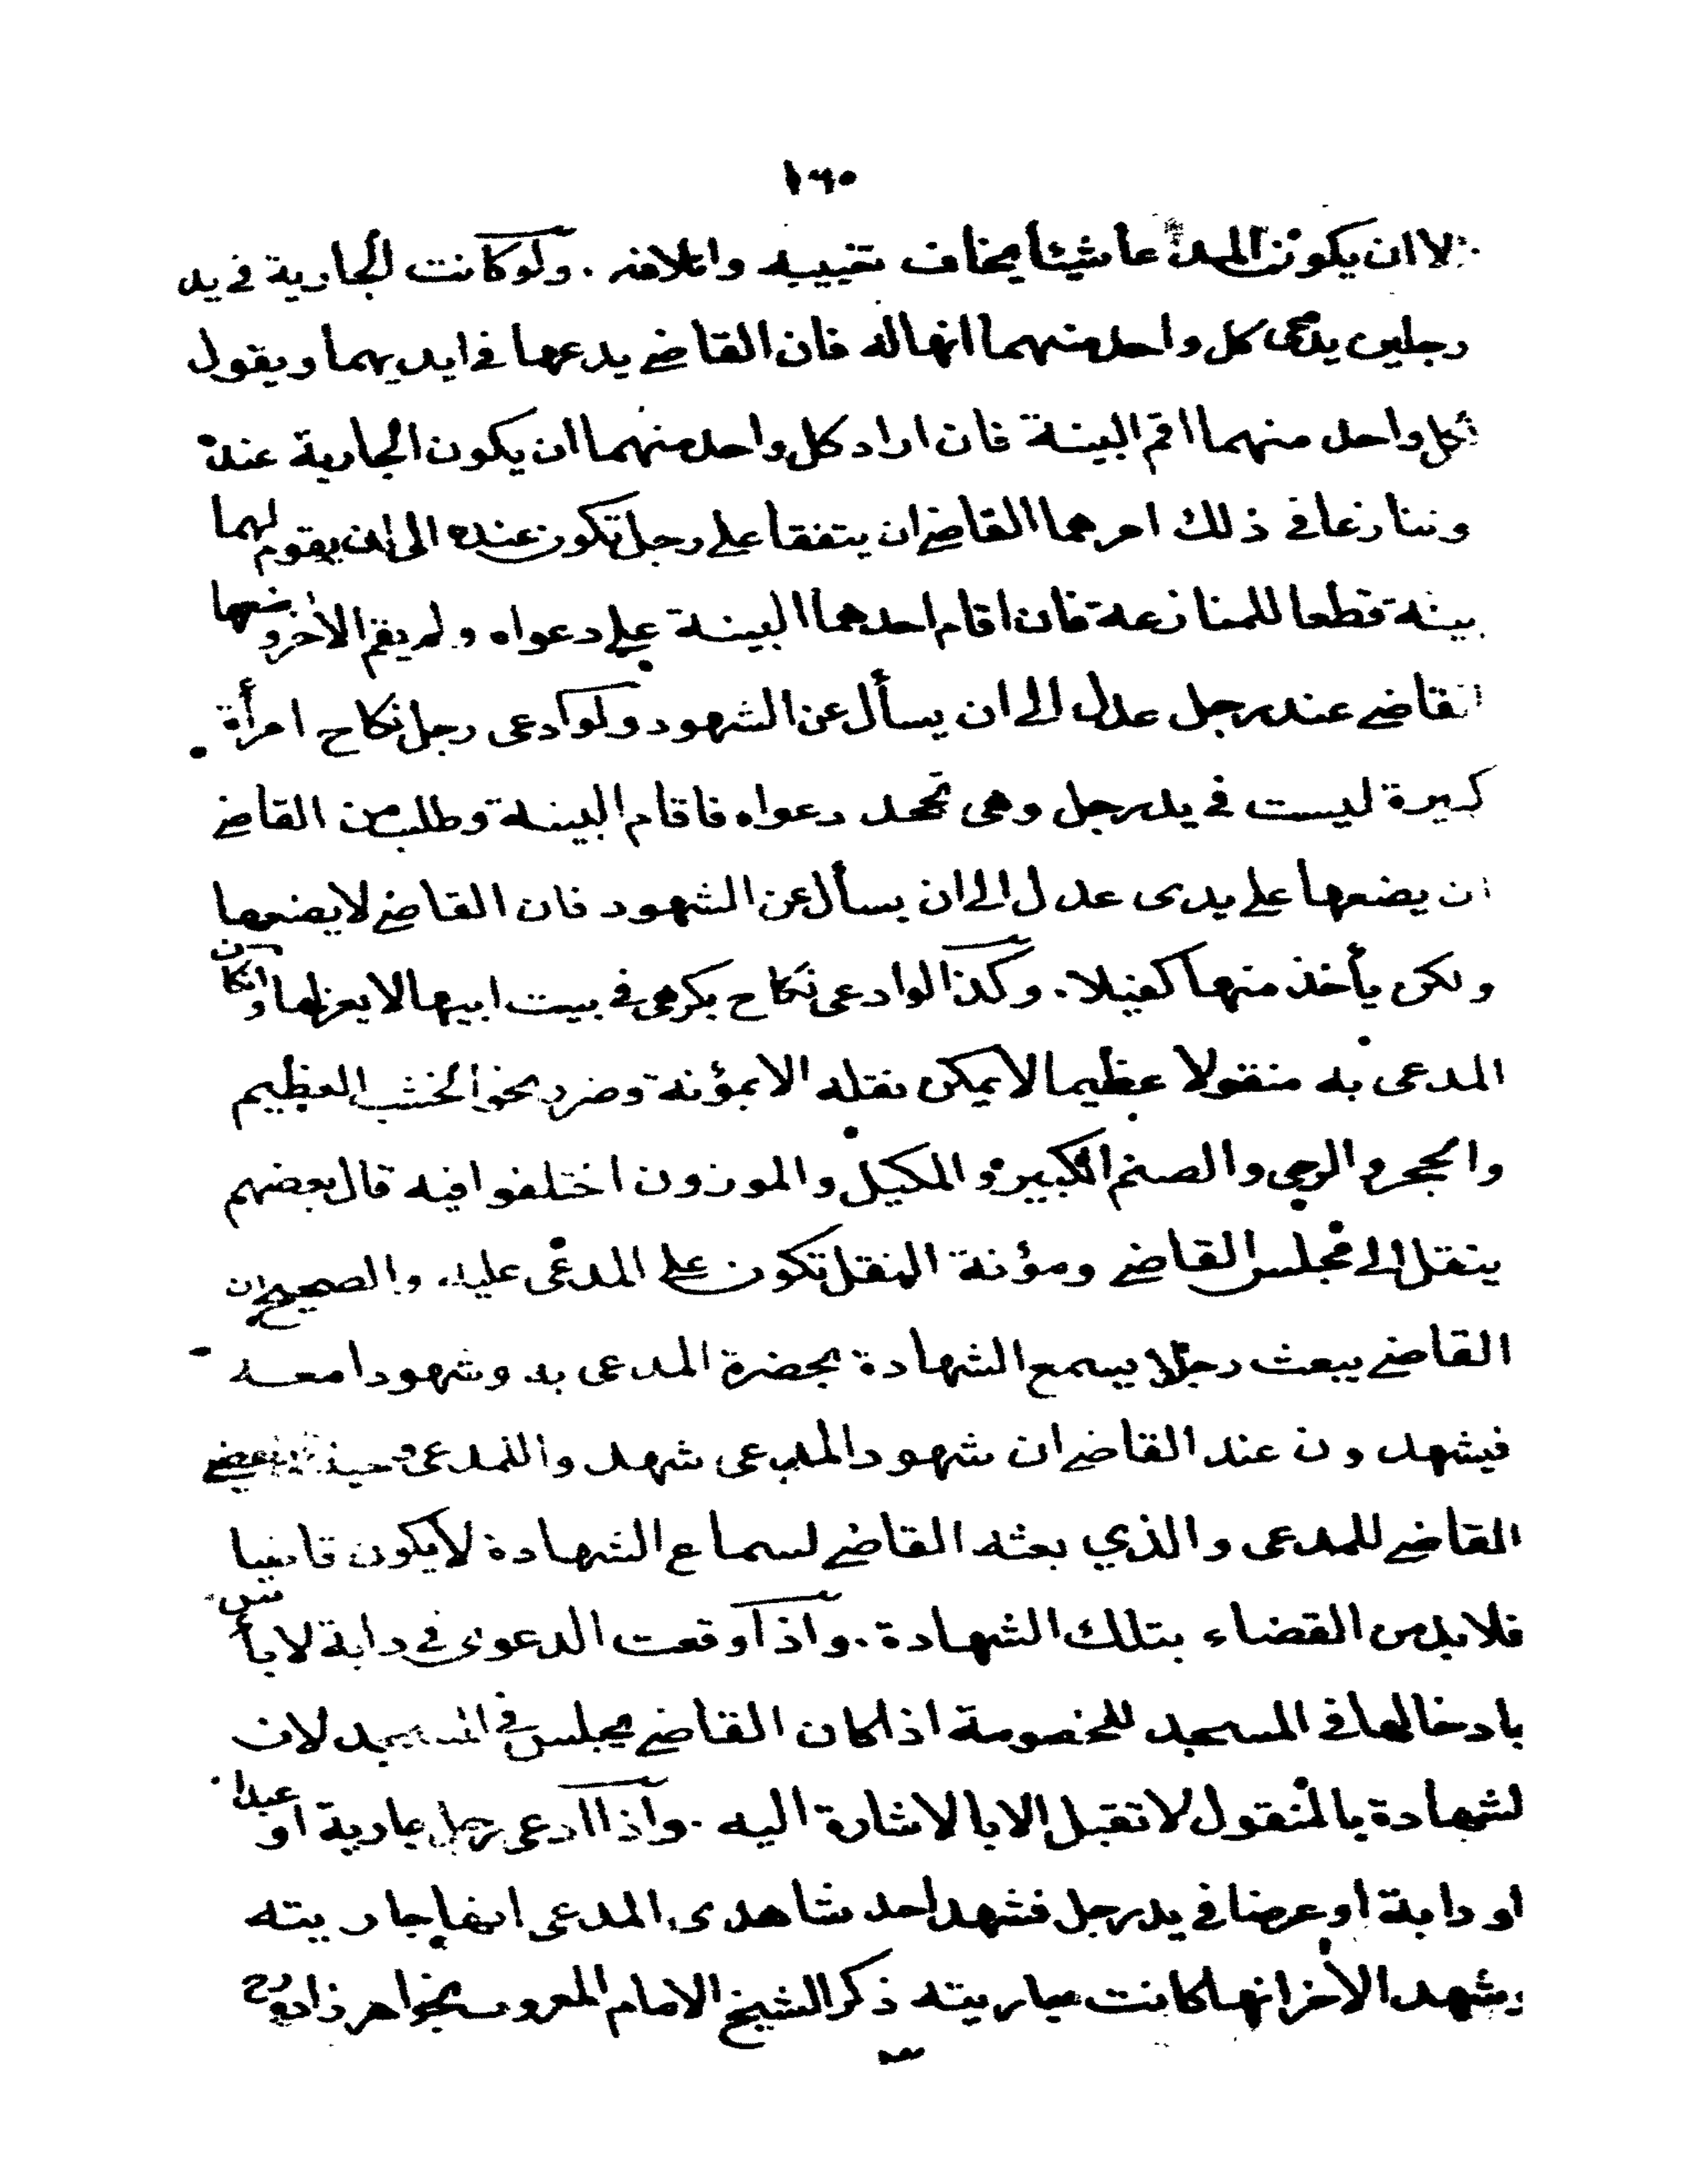 ١٦٠
لا ان يكون المدعا شيئا يخاف تغييبه واتلافه . ولوكانت الجارية في يد
رجلين يدعى كل واحد منهما انها له فان القاضي يدعها في ايديهما ويقول
لكل واحد منهما اقم البينة فان اراد كل واحد منهما ان يكون الجارية عنده
وتنازعا في ذلك امرهما القاضي ان يتفقا على رجل تكون عنده الى ان يقوم لهما
بينة قطعا للمنازعة فان اقام احدهما البينة على دعواه ولم يقم الآخر وضعها
القاضي عند رجل عدل الى ان يسأل عن الشهود ولو ادعى رجل نكاح امرأة
كبيرة ليست في يد رجل وهى تجحد دعواه فاقام البينة وطلب من القاضي
ان يضعها على يدى عدل الى ان يسأل عن الشهود فان القاضي لا يضعها
ولكن يأخذ منها كفيلا . وكذا لو ادعى نكاح بكر هى في بيت ابيها لا يعزلها وان كان
المدعى به منقولا عظيما لا يمكن نقله الا بمؤنة وضرر نحو الخشب العظيم
والحجر والرحى والصنم الكبير والمكيل والموزون اختلفوا فيه قال بعضهم
ينقل الى مجلس القاضي ومؤنة النقل تكون على المدعى عليه . والصحيح ان
القاضي يبعث رجلا يسمع الشهادة بحضرة المدعى به وشهودا معه
فيشهدون عند القاضي ان شهود المدعى شهدوا للمدعى فحينئذ يقضي
القاضي للمدعى والذي بعثه القاضي لسماع الشهادة لا يكون قاضيا
فلا بد من القضاء بتلك الشهادة . واذا وقعت الدعوى في دابة لا بأس
بادخالها في المسجد للخصومة اذا كان القاضي يجلس في المسجد لان
لشهادة بالمنقول لا تقبل الا بالاشارة اليه . واذا ادعى رجل جارية او عبدا
او دابة او عرضا في يد رجل فشهد احد شاهدى المدعى انها جاريته
وشهد الآخر انها كانت جاريته ذكر الشيخ الامام المعروف بخواهر زاده